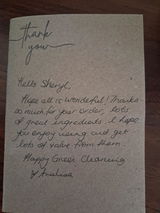 thank
you
Hello Sheryl,
Hope all is wonderful! Thanks
so much for your order, lots
of great ingredients. I hope
you enjoy using and get
lots of value from them.
Happy Green Cleaning